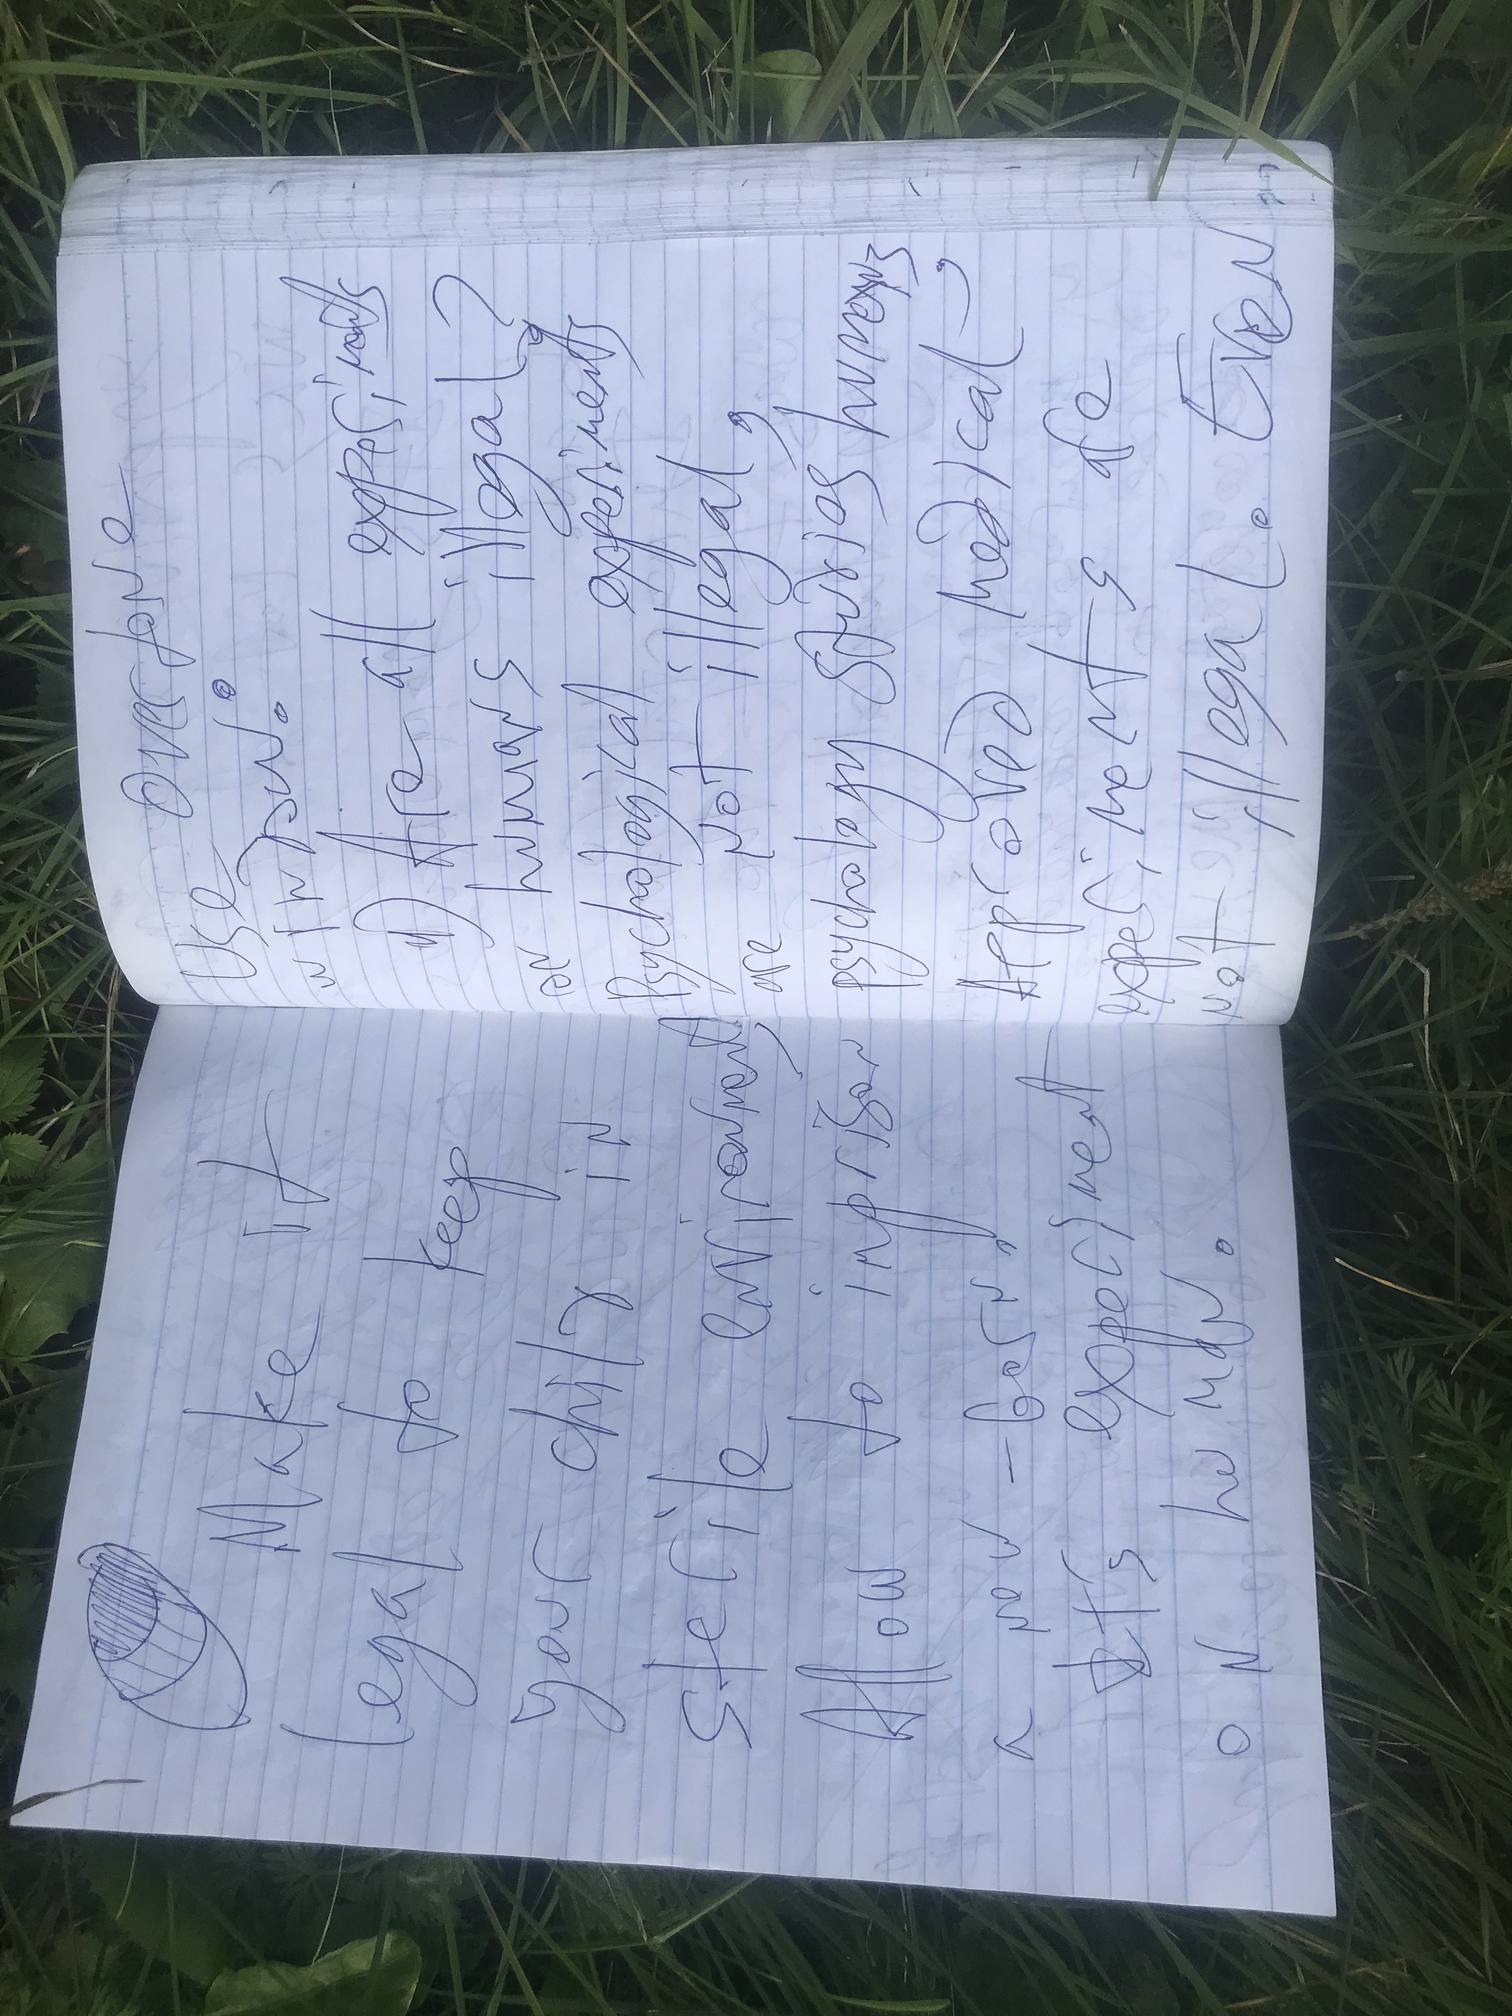 Make it
legal to keep
your child in
sterile environment,
Allow to imprison
a new-born.
It's experiment
on human.
Use
in
a) Are all experiments
on humans illegal?
Psychological experiments
are not illegal,
psychology studies humans
Approved medical,
experiments are
not illegal. Even